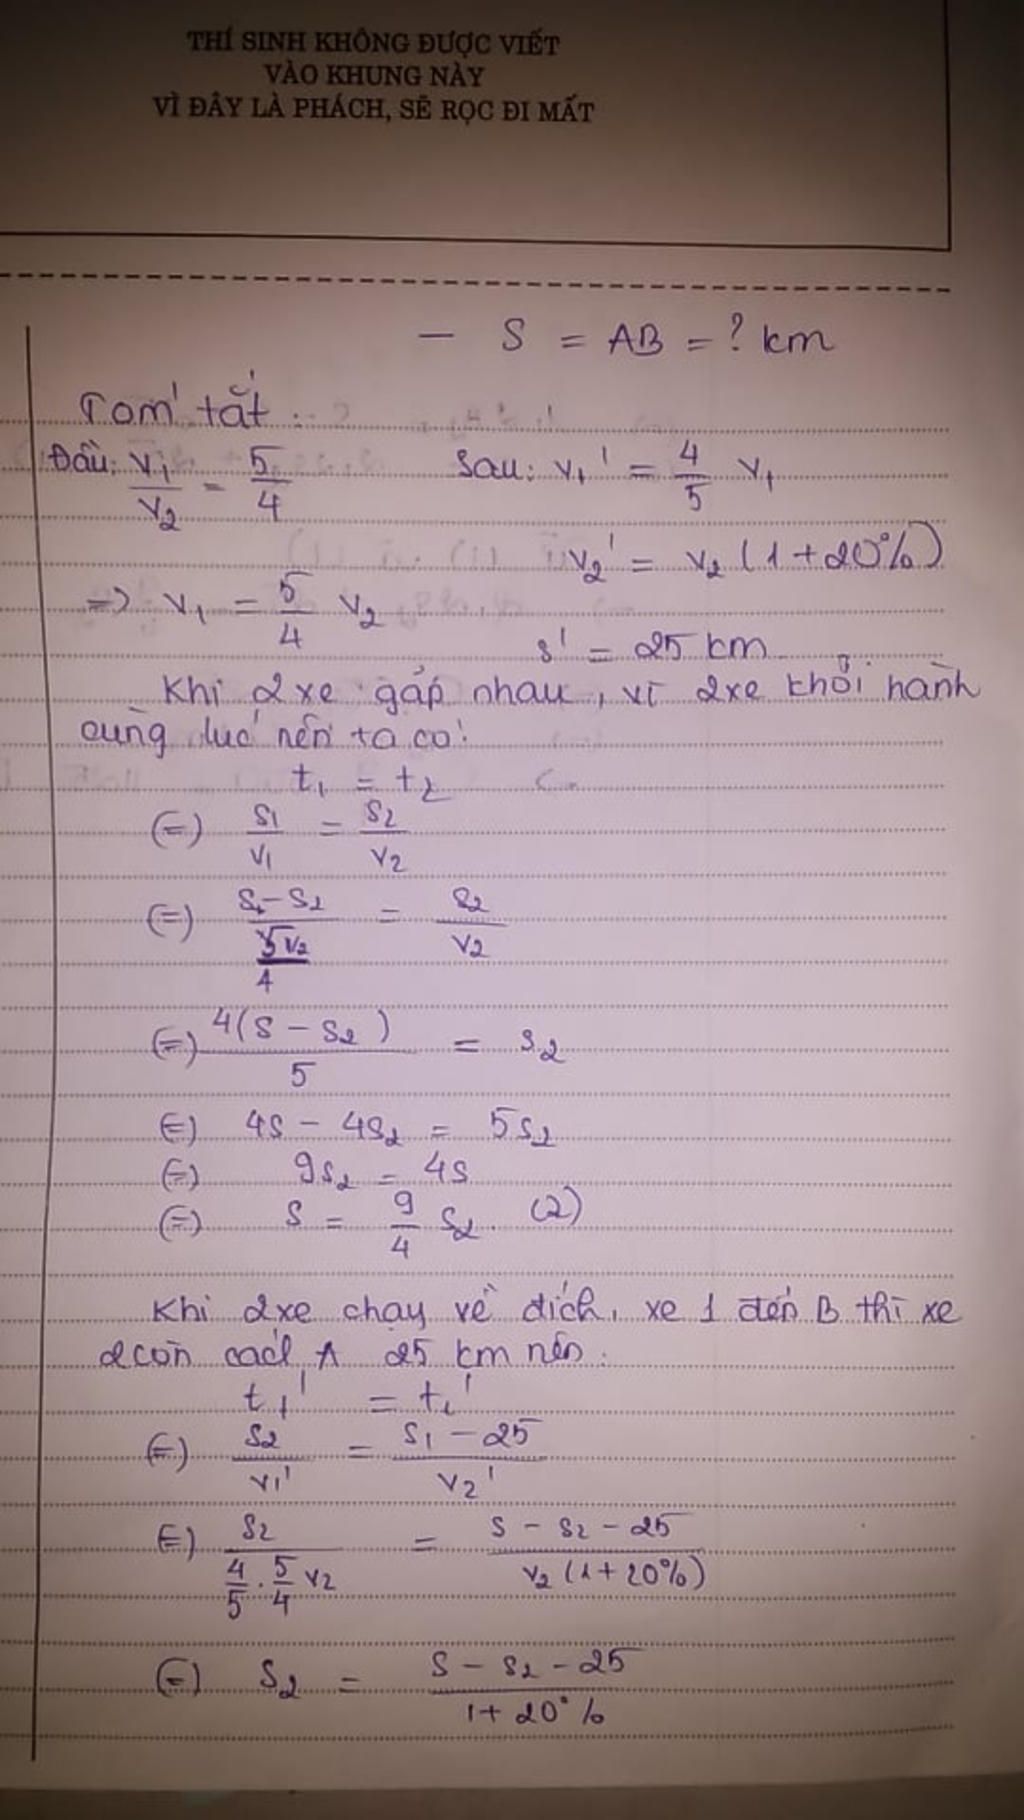 THÍ SINH KHÔNG ĐƯỢC VIẾT
VÀO KHUNG NÀY
VÌ ĐÂY LÀ PHÁCH, SẼ RỌC ĐI MẤT
— S = AB = ? km
Tóm tắt :
Đầu: v₁/v₂ = 5/4 Sau: v₁' = 4/5 v₁
v₂' = v₂ (1+20%)
=> v₁ = 5/4 v₂
s' = 25 km
Khi 2 xe gặp nhau, vì 2 xe khởi hành
cùng lúc nên ta có:
t₁ = t₂
(=) s₁/v₁ = s₂/v₂
(=) (s - s₂)/(5v₂/4) = s₂/v₂
(=) 4(s - s₂)/5 = s₂
(=) 4s - 4s₂ = 5s₂
(=) 9s₂ = 4s
(=) s = 9/4 s₂. (2)
Khi 2 xe chạy về đích, xe 1 đến B thì xe
2 còn cách A 25 km nên:
t₁' = t₂'
(=) s₂/v₁' = (s₁ - 25)/v₂'
(=) s₂/(4/5 . 5/4 v₂) = (s - s₂ - 25)/(v₂ (1+20%))
(=) s₂ = (s - s₂ - 25)/(1+20%)